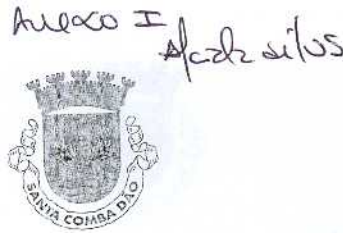 Anexo I
SANTA COMBA DÃO